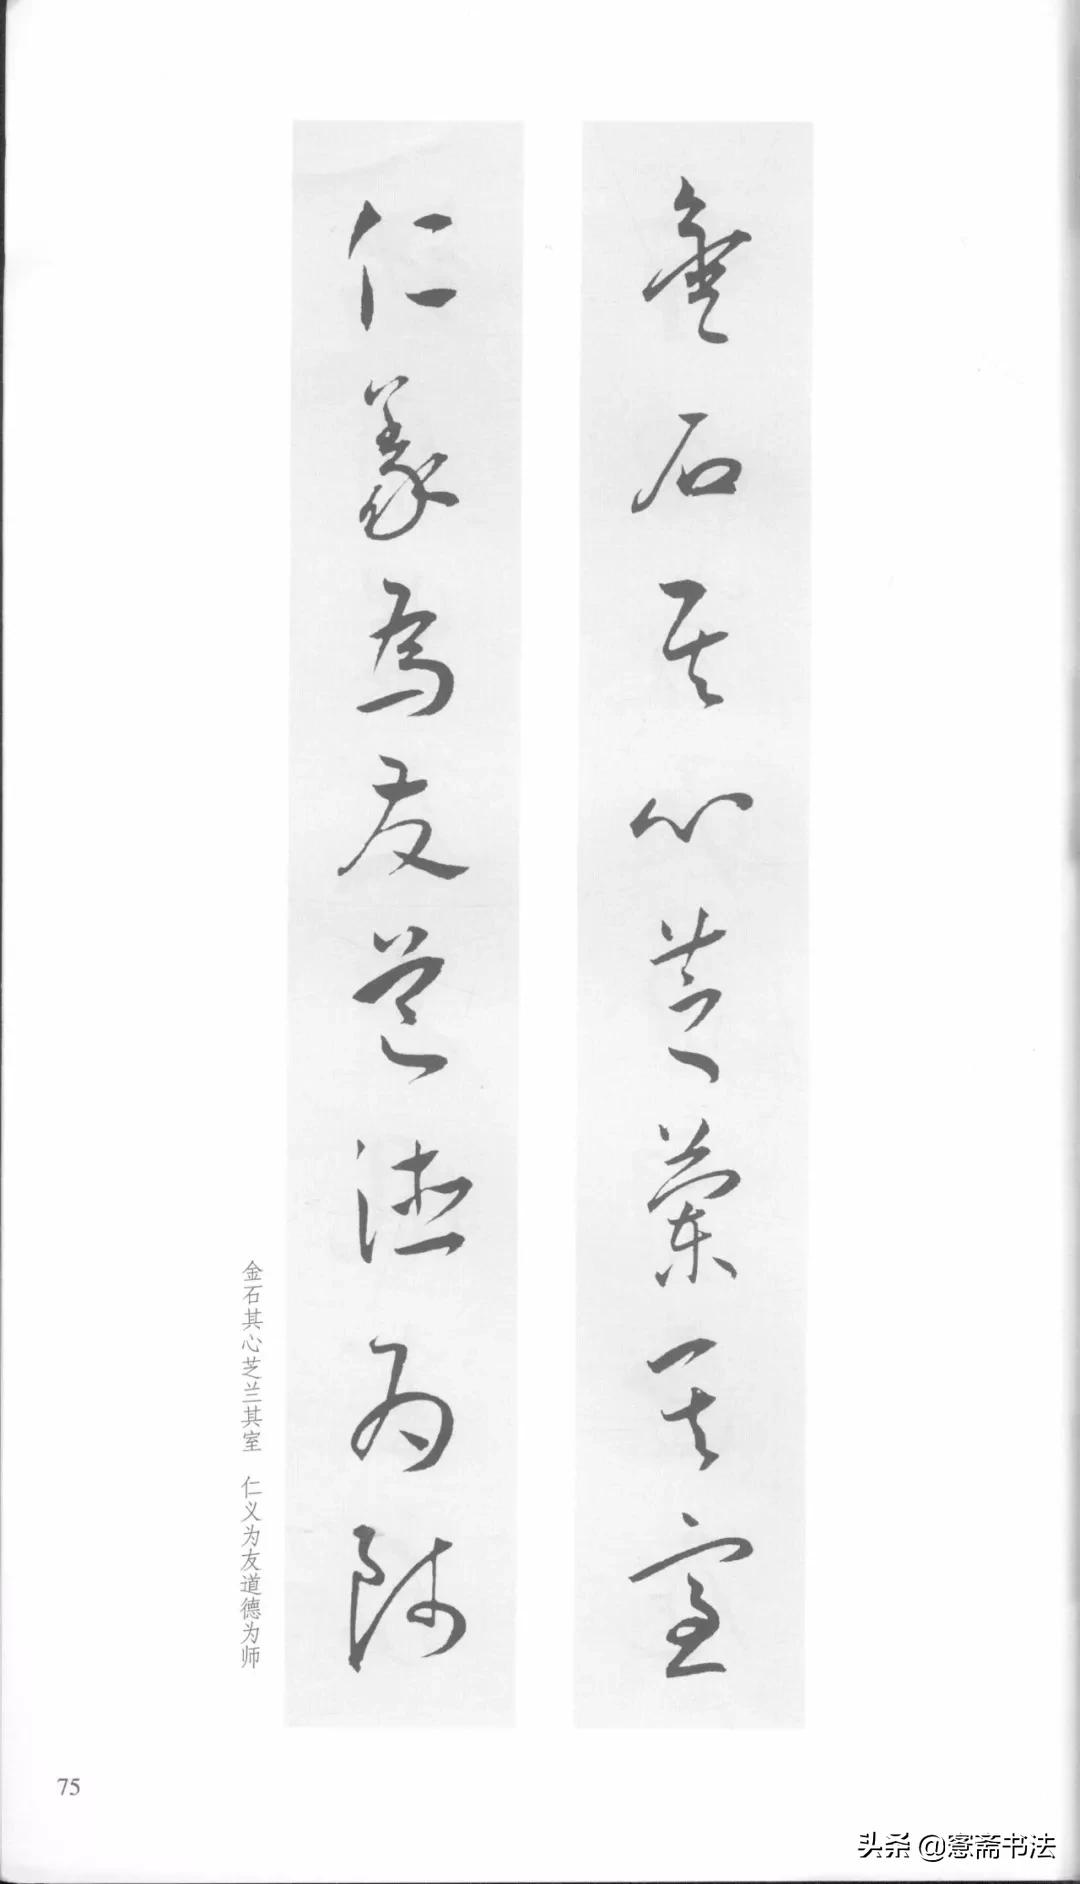 金石其心芝蘭其室
仁義為友道德為師
金石其心芝兰其室 仁义为友道德为师
75
头条 @骞斋书法